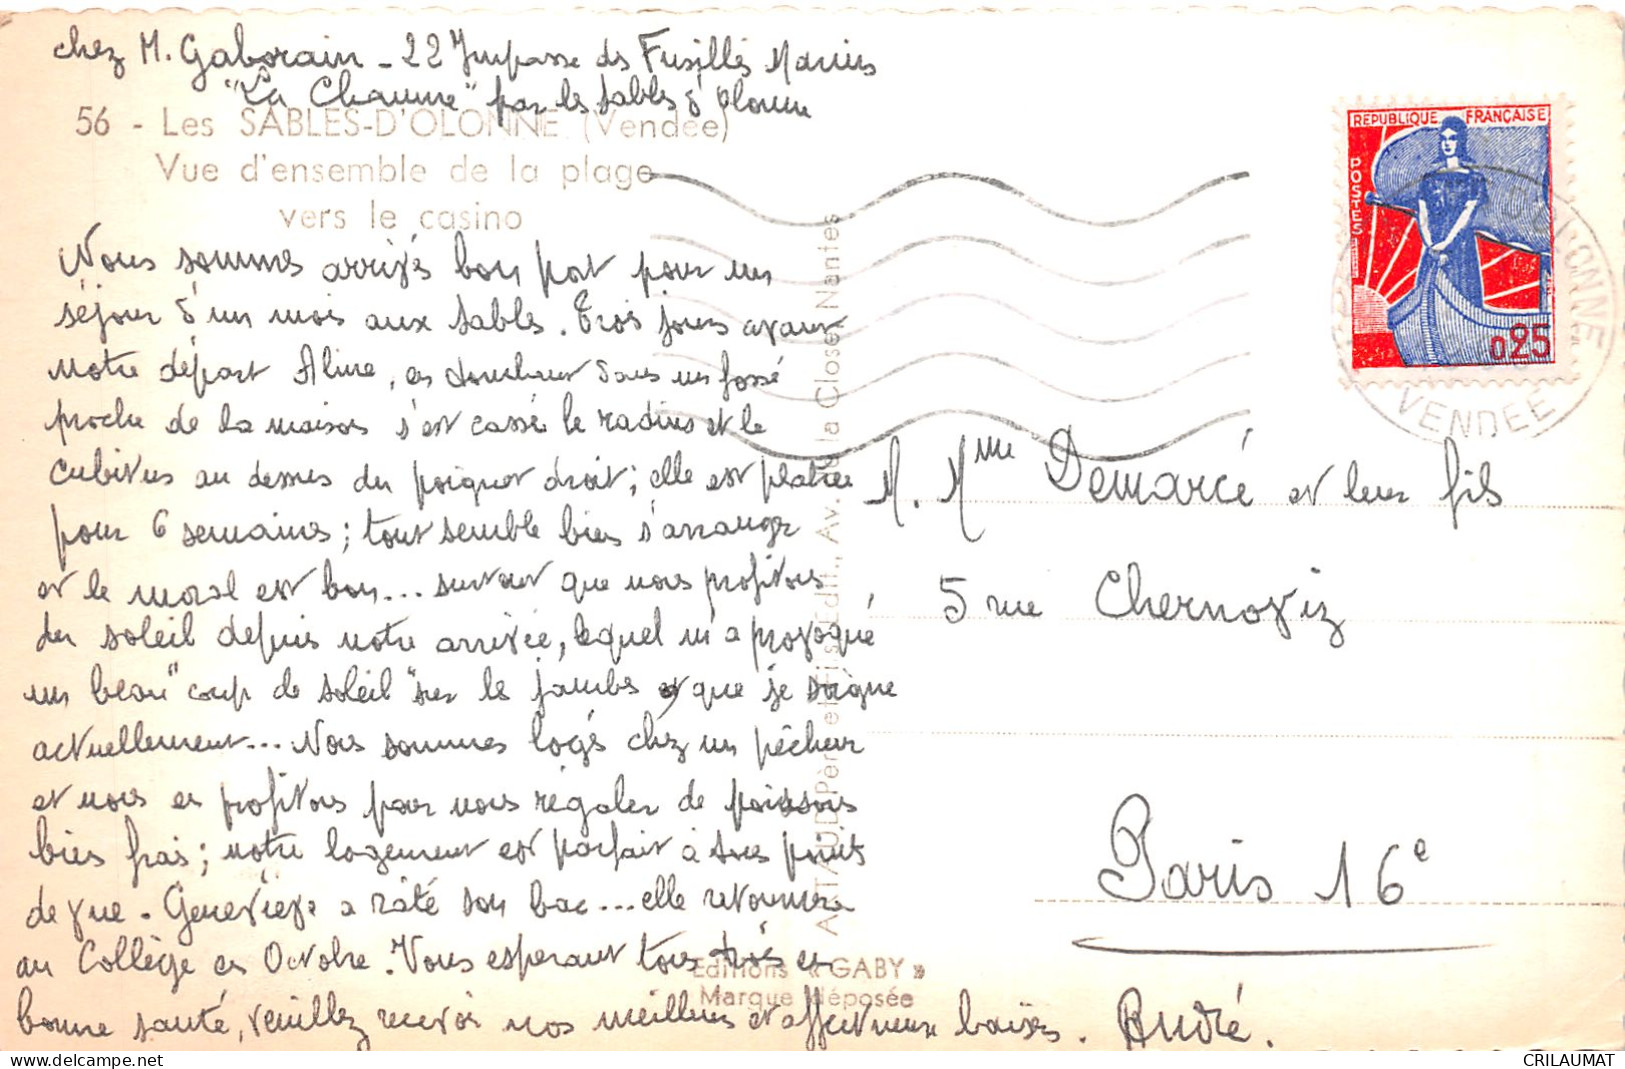 chez M. Gaborain - 22 Impasse des Fusillés Marins
"La Chaume" par les Sables d'Olonne
56 - Les SABLES-D'OLONNE (Vendée)
Vue d'ensemble de la plage
vers le casino
Nous sommes arrivés bon port pour un
séjour d'un mois aux Sables. Trois jours avant
notre départ Aline, en tombant dans un fossé
proche de la maison s'est cassé le radius et le
cubitus au dessus du poignet droit ; elle est platrée
pour 6 semaines ; tout semble bien s'arranger
et le moral est bon... surtout que nous profitons
du soleil depuis notre arrivée, lequel m'a provoqué
un beau "coup de soleil" sur les jambes et que je soigne
actuellement... Nous sommes logés chez un pêcheur
et nous en profitons pour nous régaler de poissons
bien frais ; notre logement est parfait à tous points
de vue. Geneviève a raté son bac... elle retournera
au Collège en Octobre. Vous espérant tous trois en
bonne santé, veuillez recevoir nos meilleurs et affectueux baisers. André.
M. Mme Demarcé et leur fils
5 rue Chernoviz
Paris 16e
ARTAUD Père et Fils Edit., Av. de la Close, Nantes
Editions « GABY »
Marque déposée
REPUBLIQUE FRANÇAISE
POSTES
0,25
D'OLONNE
VENDEE
CRILAUMAT